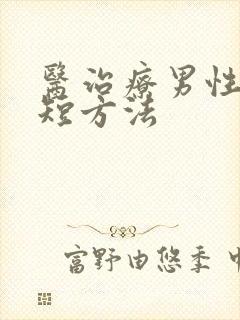 醫治療男性
短方法
富野由悠季